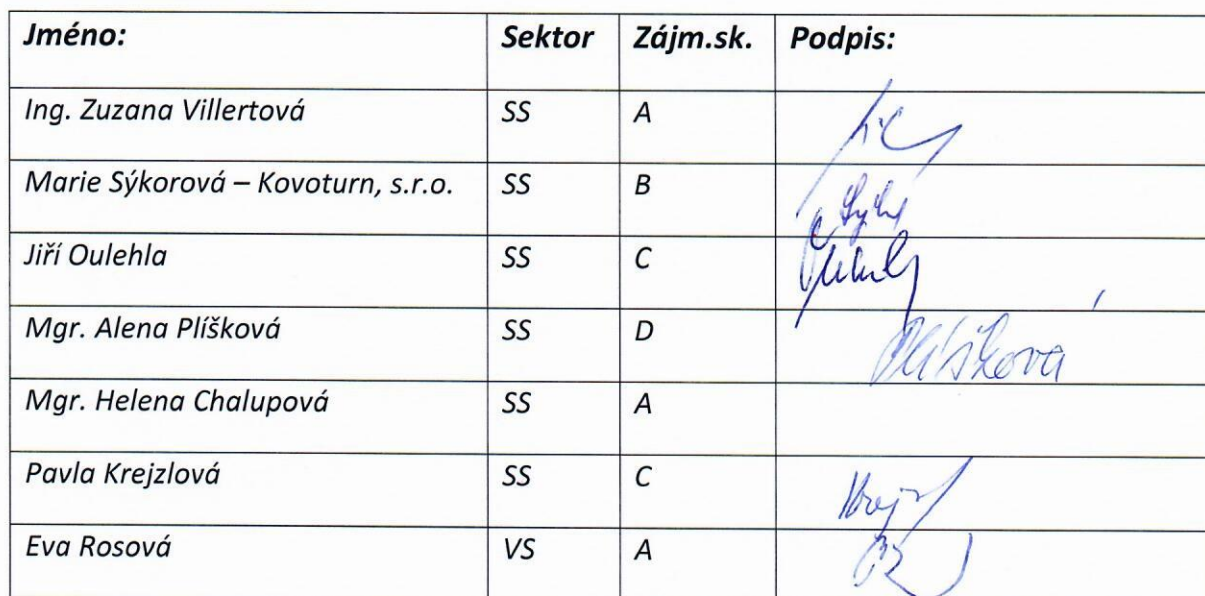 Jméno: Sektor Zájm.sk. Podpis:
Ing. Zuzana Villertová SS A
Marie Sýkorová – Kovoturn, s.r.o. SS B
Jiří Oulehla SS C
Mgr. Alena Plíšková SS D Plíšková
Mgr. Helena Chalupová SS A
Pavla Krejzlová SS C
Eva Rosová VS A